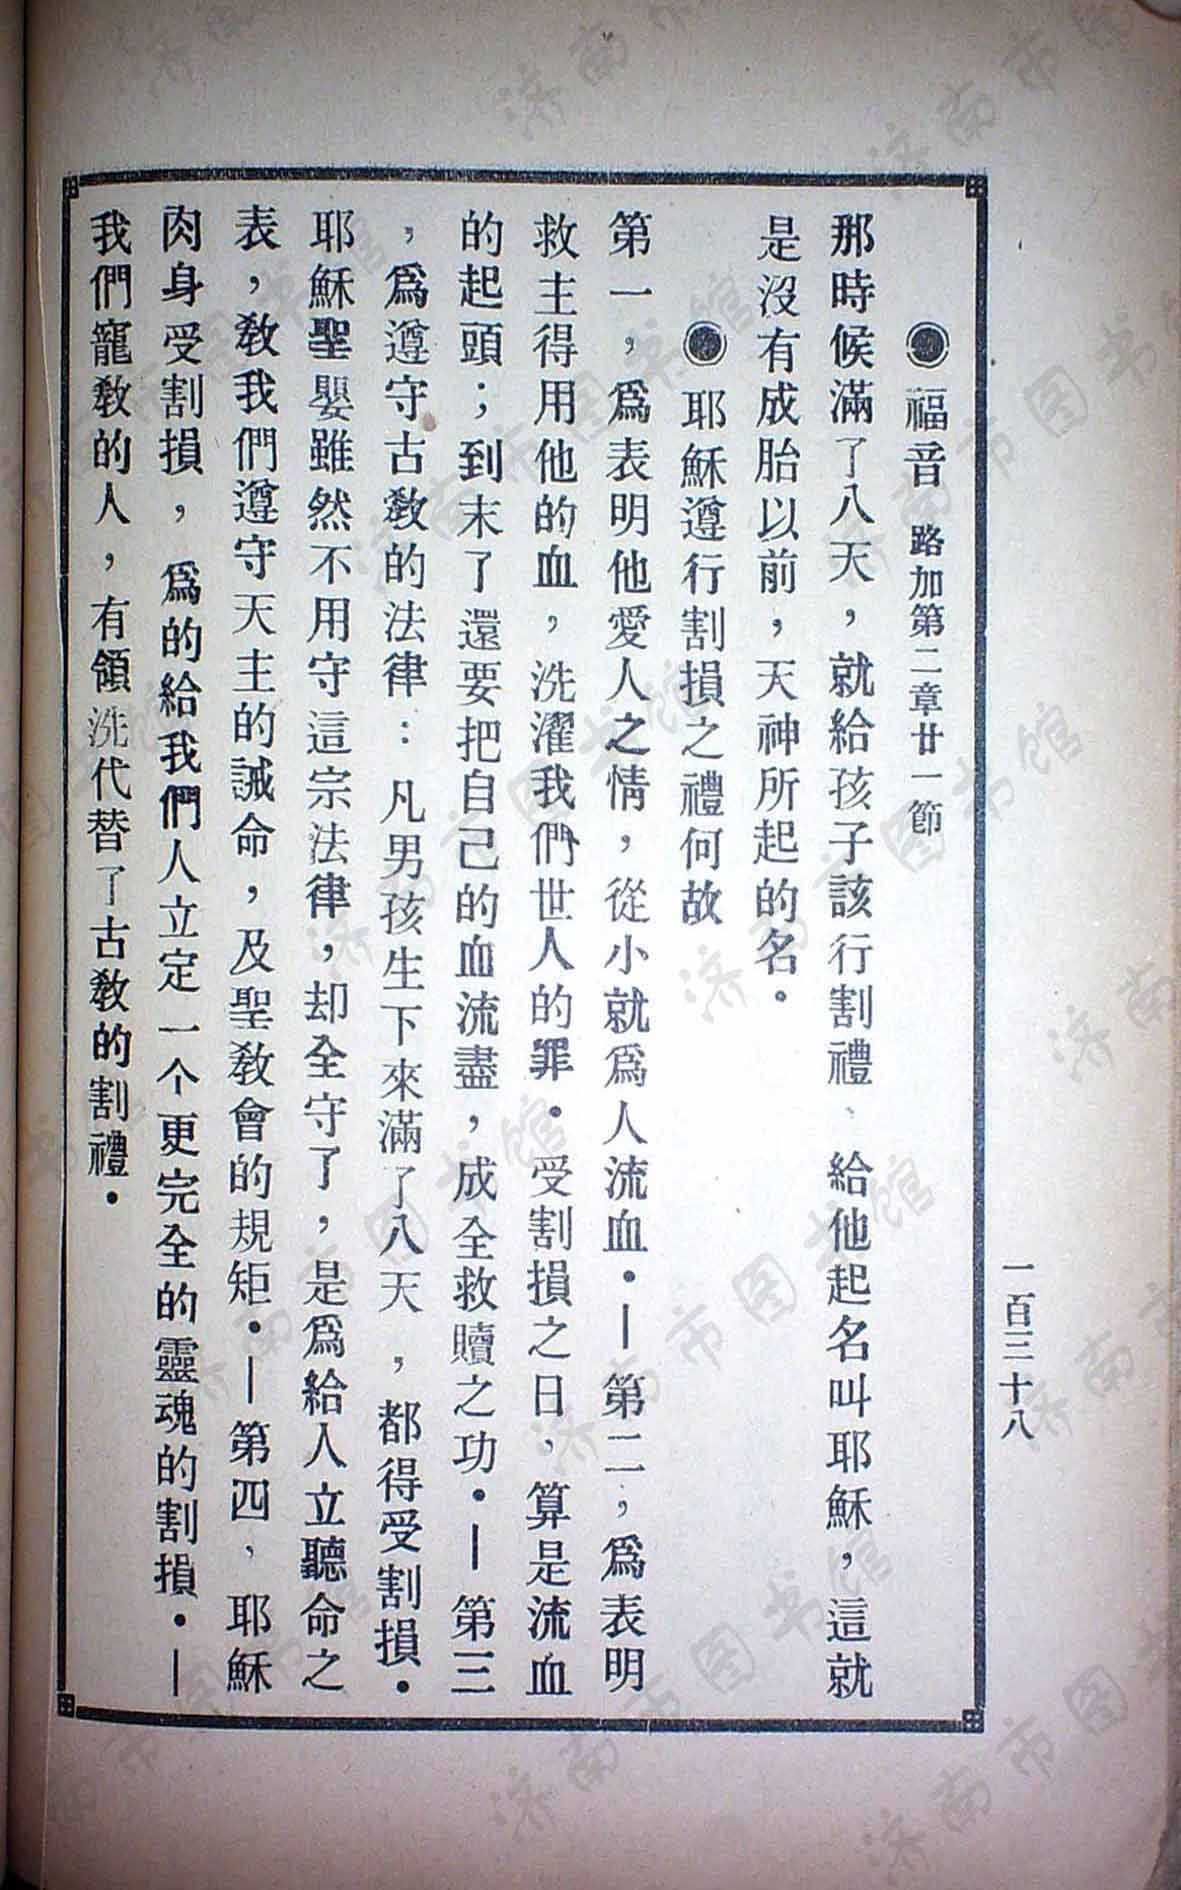 一百三十八
◉福音 路加第二章廿一節
那時候滿了八天，就給孩子該行割禮、給他起名叫耶穌，這就
是沒有成胎以前，天神所起的名．
◉耶穌遵行割損之禮何故
第一，爲表明他愛人之情，從小就爲人流血．—第二，爲表明
救主得用他的血，洗濯我們世人的罪．受割損之日，算是流血
的起頭；到末了還要把自己的血流盡，成全救贖之功．—第三
，爲遵守古教的法律：凡男孩生下來滿了八天，都得受割損．
耶穌聖嬰雖然不用守這宗法律，却全守了，是爲給人立聽命之
表，教我們遵守天主的誡命，及聖教會的規矩．—第四，耶穌
肉身受割損，爲的給我們人立定一个更完全的靈魂的割損．—
我們寵教的人，有領洗代替了古教的割禮．
济南市图书馆